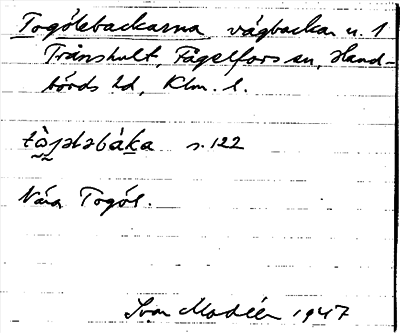 Togölebackarna vägbackar n. 1
Tränshult, Fagelfors sn, Hand-
börds hd, Klm. l.
tò̰jələbáka s. 122
Nära Togöl.
Ivar Modéer 1947